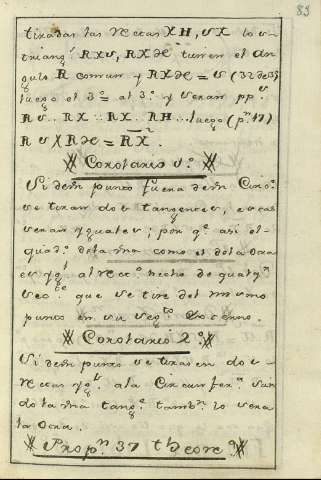 83
tiradas las rectas XH, VX los
triang.s RXV, RXH tienen el an
gulo R comun y RXH = V (32 de 3)
luego el 3.o = al 3.o y seran pp.s
RV.. RX :: RX. RH... luego (p.n 17)
RV X RH = RX².
Corolario 1.o
Si desde punto fuera de un Circ.o
se tiran dos tangentes, estas
seran yguales; por q.e asi el
quad.o de la una como el de la otra
es yg.l al rect.o hecho de qualq.r
sec.te que se tire del mismo
punto en su seg.to externo.
Corolario 2.o
Si de un punto se tirasen dos
rectas yg.s a la Circunfer.a sien
do la una tang.e tamb.n lo sera
la otra.
Prop.n 37 theore.